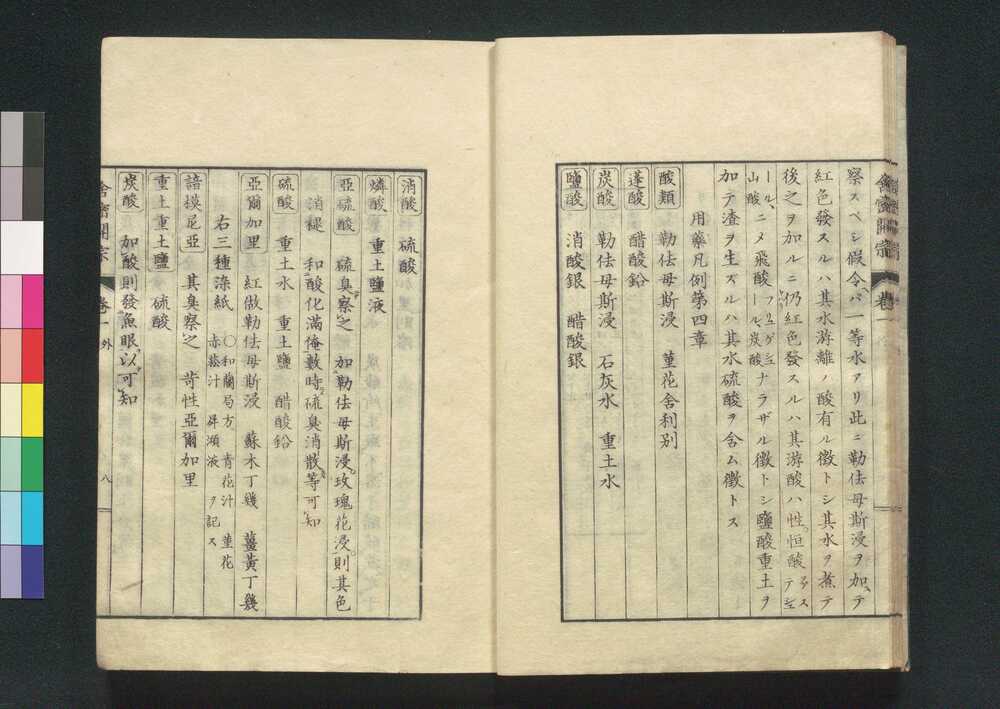 舍密開宗
卷一
察スベシ假令バ一等水アリ此ニ勒佉母斯浸ヲ加ヘテ
紅色發スルハ其水游離ノ酸有ル徴トシ其水ヲ煮テ
後之ヲ加ルニ仍紅色發スルハ其游酸ハ性恒酸
ナラザル徴トシ鹽酸重土ヲ
加テ渣ヲ生ズルハ其水硫酸ヲ含ム徴トス
用藥凡例第四章
酸類 勒佉母斯浸 菫花舍利別
蓬酸 醋酸鉛
炭酸 勒佉母斯浸 石灰水 重土水
鹽酸 消酸銀 醋酸銀
消酸 硫酸
燐酸 重土鹽液
亞硫酸 硫臭察之 加勒佉母斯浸玫瑰花浸則其色
消褪 和酸化滿俺數時硫臭消散等可知
硫酸 重土水 重土鹽 醋酸鉛
亞爾加里 紅做勒佉母斯浸 蘇木丁幾 薑黃丁幾
右三種染紙 〇和蘭局方 青花汁 菫花
赤菘汁 屏液ヲ記ス
諳模尼亞 其臭察之 苛性亞爾加里
重土重土鹽 硫酸
炭酸 加酸則發魚眼以可知
舍密開宗
卷一 外
八